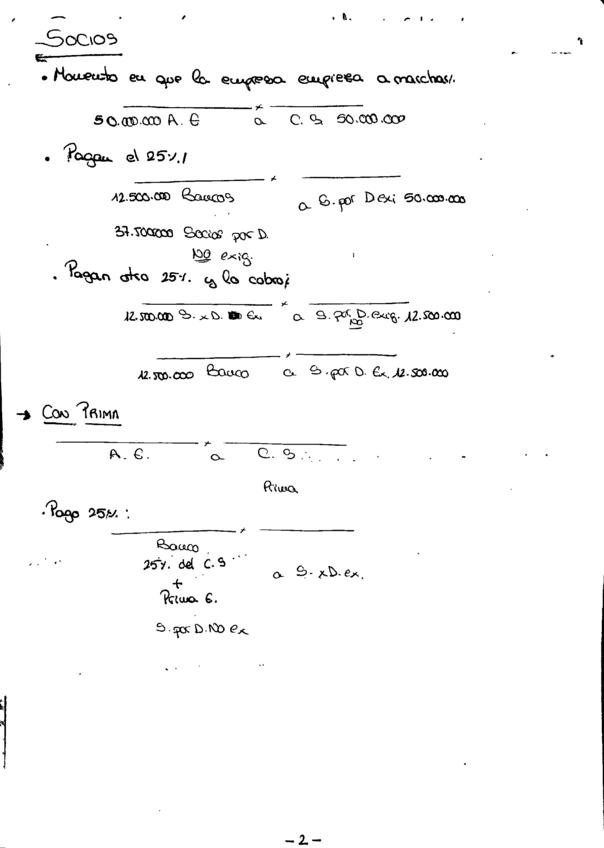 SOCIOS
• Momento en que la empresa empieza a marchar/.
50.000.000 A. E a C. S 50.000.000
• Pagan el 25%/
12.500.000 Bancos a S. por D exi 50.000.000
37.500000 Socios por D.
NO exig.
• Pagan otro 25%. y lo cobro;
12.500.000 S. x D. Ex a S. por D. exig. 12.500.000
NO
12.500.000 Banco a S. por D. Ex. 12.500.000
→ CON PRIMA
A. E. a C. S...
Prima
• Pago 25%. :
Banco
25%. del C.S ... a S. x D. ex.
+
Prima E.
S. por D. NO ex
- 2 -